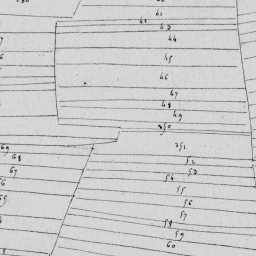 41
42
43
44
45
46
47
48
49
250
251
52
53
54
55
56
57
58
59
60
69
68
67
66
65